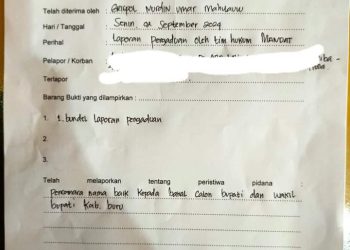 Telah diterima oleh : Nurdin Umar
Hari / Tanggal : Senin, 02 September 2024
Perihal : Laporan pengaduan oleh tim hukum MANDAT
Pelapor / Korban :
Terlapor
Barang Bukti yang dilampirkan :
1. 1. bundel laporan pengaduan
2.
3.
Telah melaporkan tentang peristiwa pidana :
nama baik kepada bakal calon bupati dan wakil
bupati Kab. buru